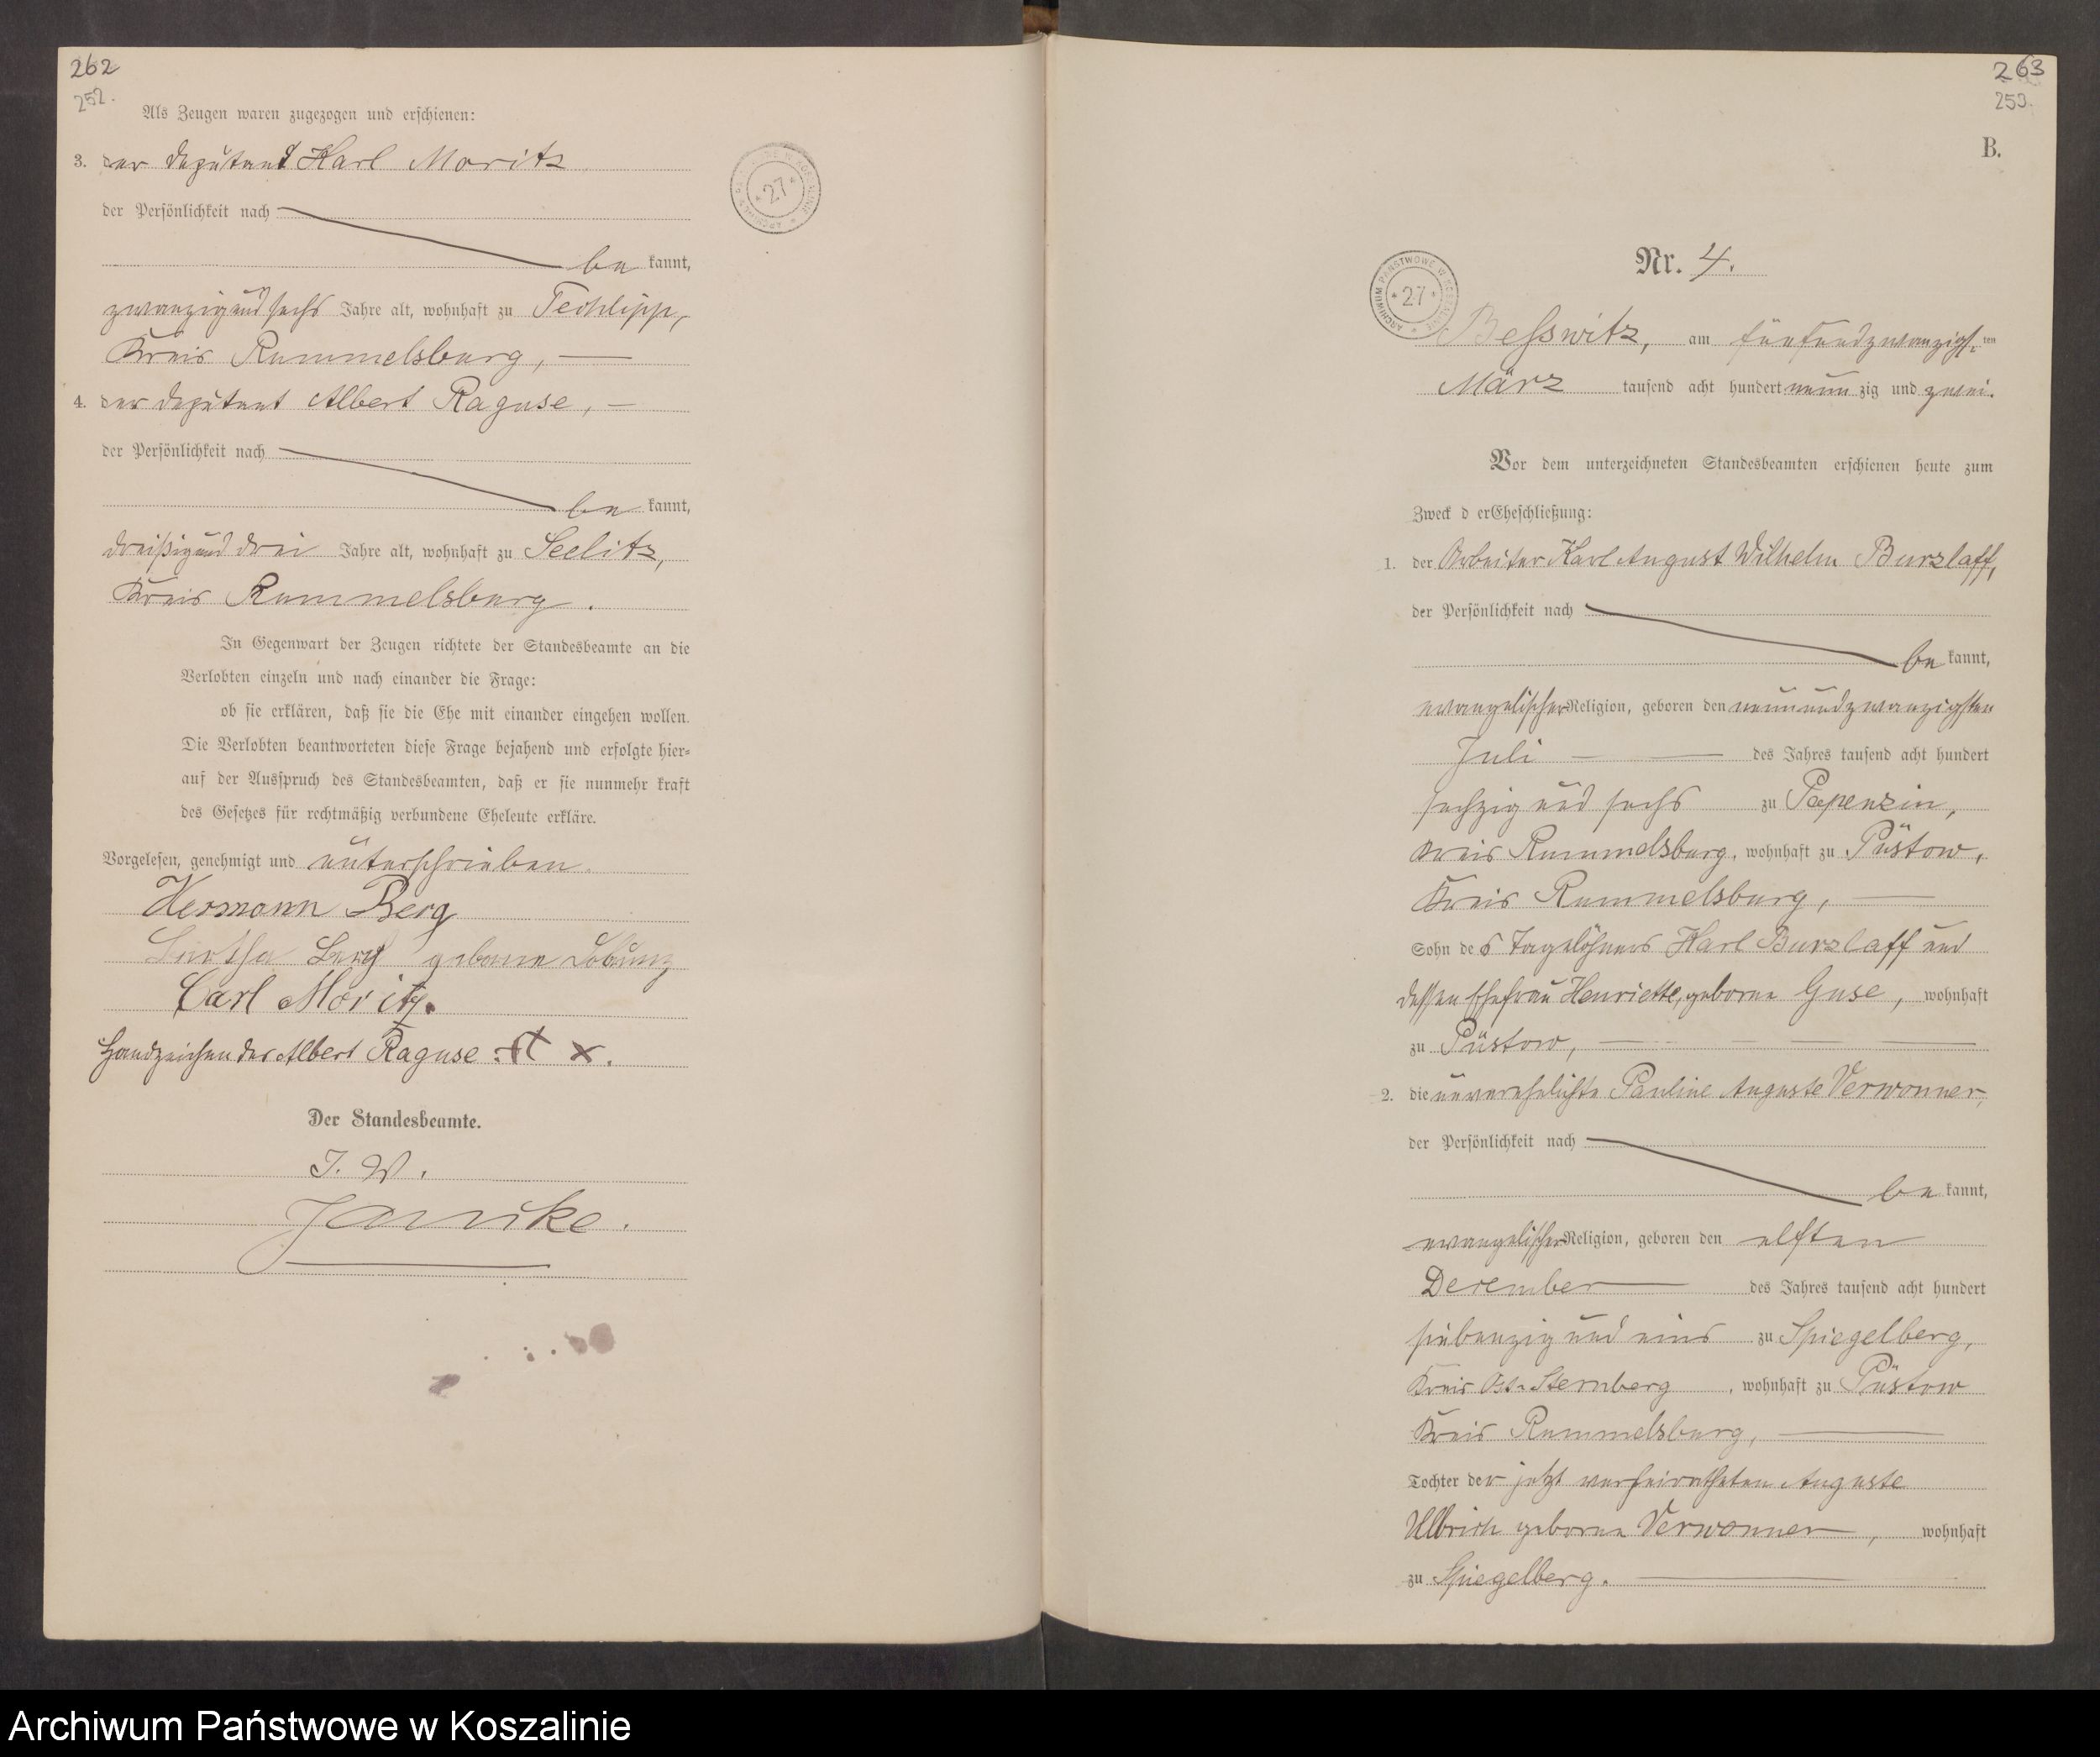 262
252.
Als Zeugen waren zugezogen und erschienen:
3. der Deputant Karl Moritz
der Persönlichkeit nach
be kannt,
zwanzig und sechs Jahre alt, wohnhaft zu Techlipp,
Kreis Rummelsburg, —
4. der Deputant Albert Raguse, —
der Persönlichkeit nach
be kannt,
dreißig und drei Jahre alt, wohnhaft zu Seelitz,
Kreis Rummelsburg.
In Gegenwart der Zeugen richtete der Standesbeamte an die
Verlobten einzeln und nach einander die Frage:
ob sie erklären, daß sie die Ehe mit einander eingehen wollen.
Die Verlobten beantworteten diese Frage bejahend und erfolgte hier-
auf der Ausspruch des Standesbeamten, daß er sie nunmehr kraft
des Gesetzes für rechtmäßig verbundene Eheleute erkläre.
Vorgelesen, genehmigt und unterschrieben.
Hermann Berg
Bertha Berg geborne
Carl Moritz.
Handzeichen des Albert Raguse: x.
Der Standesbeamte.
J. V.
Janike.
ARCHIWUM PAŃSTWOWE W KOSZALINIE * 27 *
263
253.
B.
Nr. 4.
ARCHIWUM PAŃSTWOWE W KOSZALINIE * 27 *
Besswitz, am fünfundzwanzigs-ten
März tausend acht hundert neun zig und zwei.
Vor dem unterzeichneten Standesbeamten erschienen heute zum
Zweck d er Eheschließung:
1. der Arbeiter Karl August Wilhelm Burzlaff,
der Persönlichkeit nach
be kannt,
evangelischer Religion, geboren den neunundzwanzigsten
Juli — des Jahres tausend acht hundert
sechzig und sechs zu Papenzin,
Kreis Rummelsburg, wohnhaft zu Püstow,
Kreis Rummelsburg, —
Sohn des Tagelöhners Karl Burzlaff und
dessen Ehefrau Henriette, geborne Guse, wohnhaft
zu Püstow, —
2. die unverehelichte Pauline Auguste Verwonner,
der Persönlichkeit nach
be kannt,
evangelischer Religion, geboren den elften
December — des Jahres tausend acht hundert
siebenzig und eins zu Spiegelberg,
Kreis Ost-Sternberg, wohnhaft zu Püstow
Kreis Rummelsburg, —
Tochter der jetzt verheiratheten Auguste
Ullbrich geborne Verwonner —, wohnhaft
zu Spiegelberg. —
Archiwum Państwowe w Koszalinie